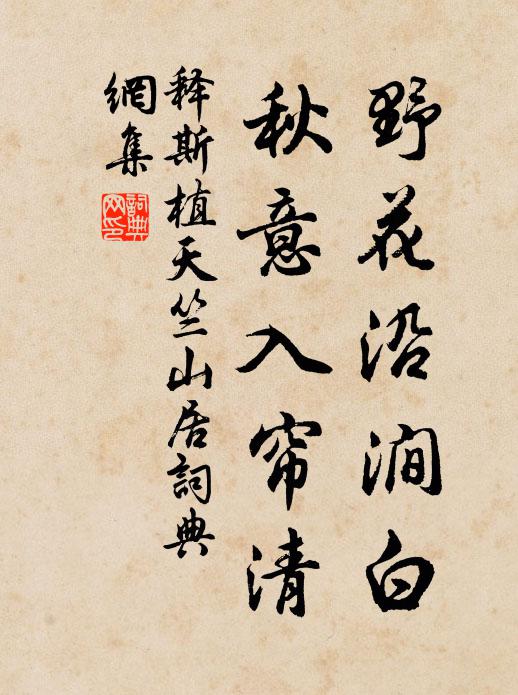 野花沿涧白
秋意入帘清
释斯植天竺山居詞典
網集
詞典网印